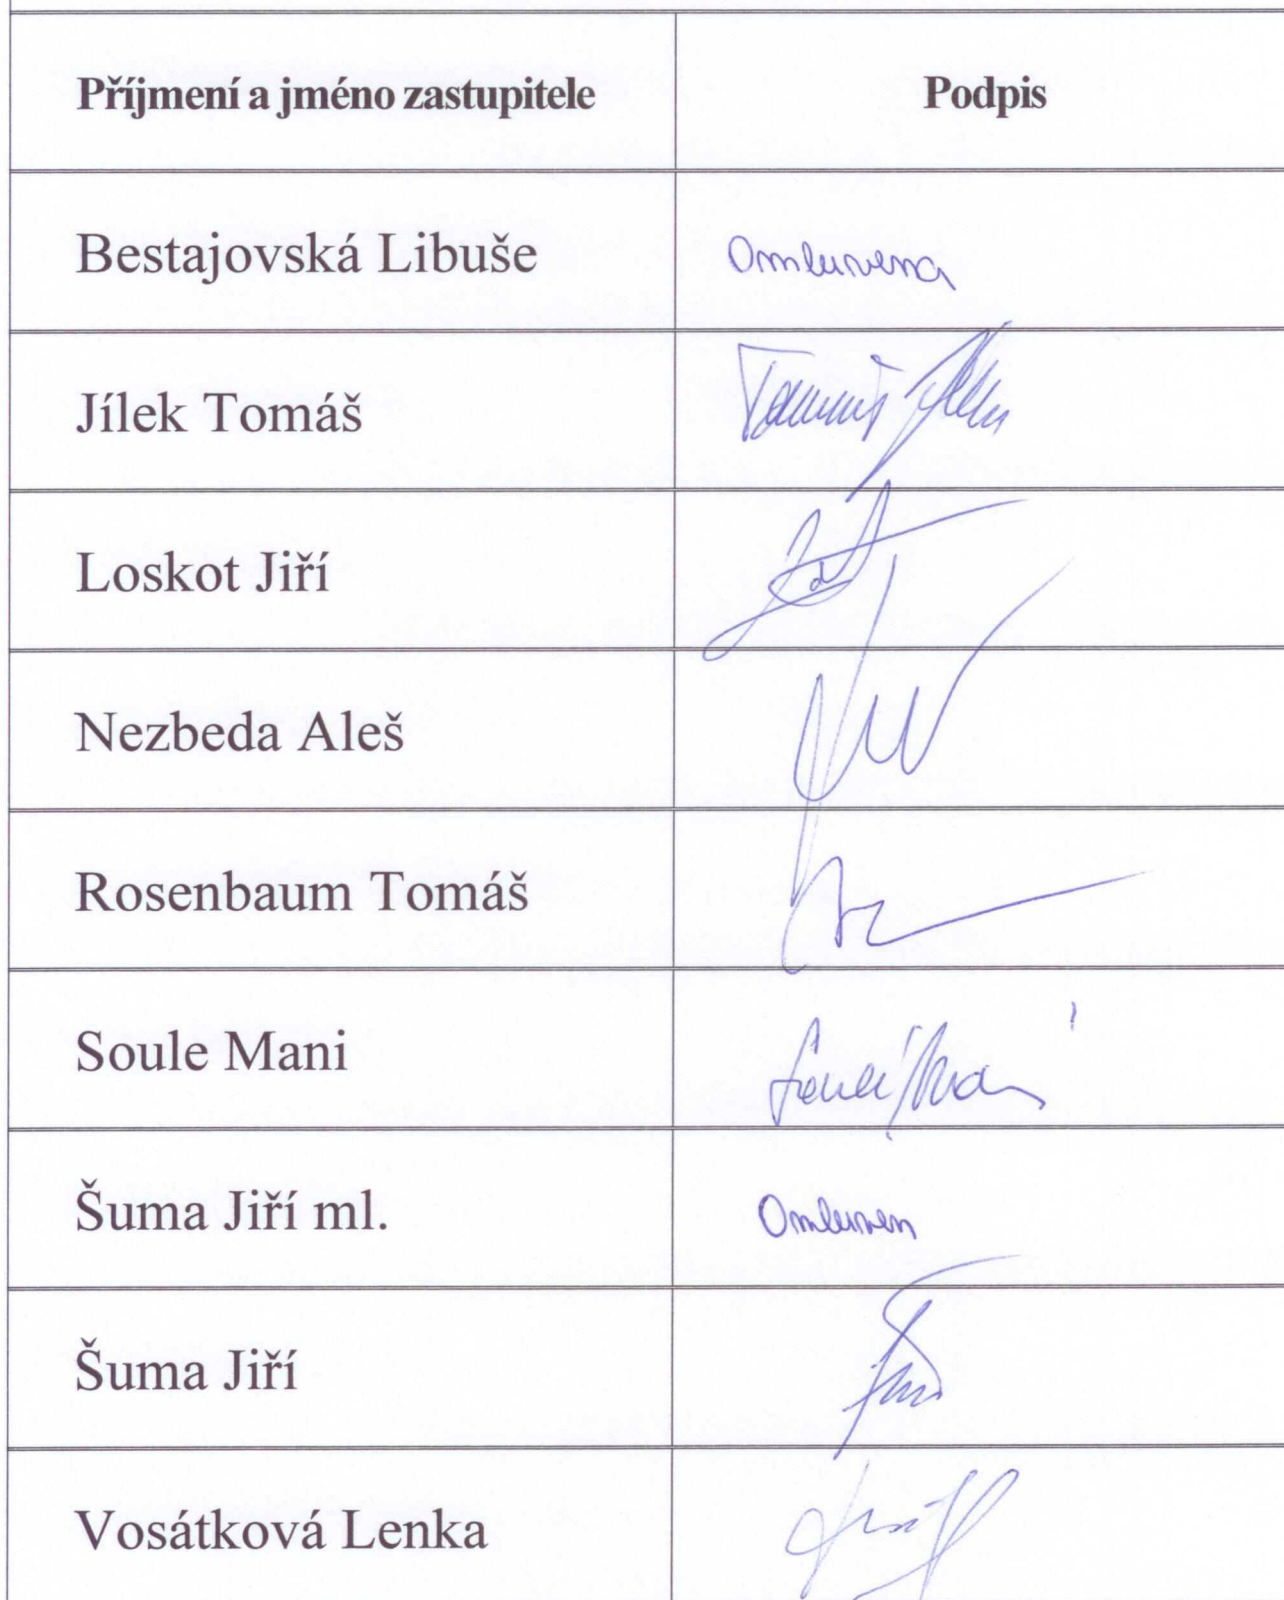 Příjmení a jméno zastupitele Podpis
Bestajovská Libuše Omluvena
Jílek Tomáš Tomáš Jílek
Loskot Jiří
Nezbeda Aleš
Rosenbaum Tomáš
Soule Mani
Šuma Jiří ml. Omluven
Šuma Jiří
Vosátková Lenka